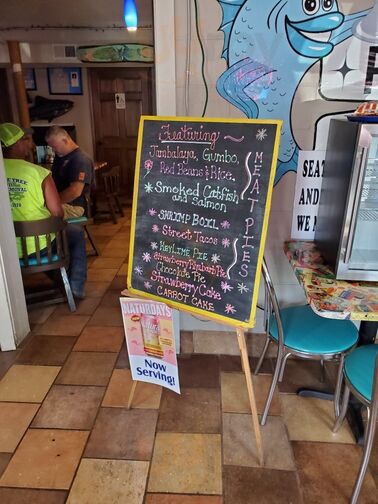 Featuring
Jambalaya, Gumbo,
Red Beans & Rice,
Smoked Catfish
and Salmon
SHRIMP BOIL
Street Tacos
KEYLIME PIE
Strawberry Rhubarb Pie
Chocolate Pie
Strawberry Cake
CARROT CAKE
MEAT PIES
NATURDAYS
Now
Serving!
SEAT
AND
WE